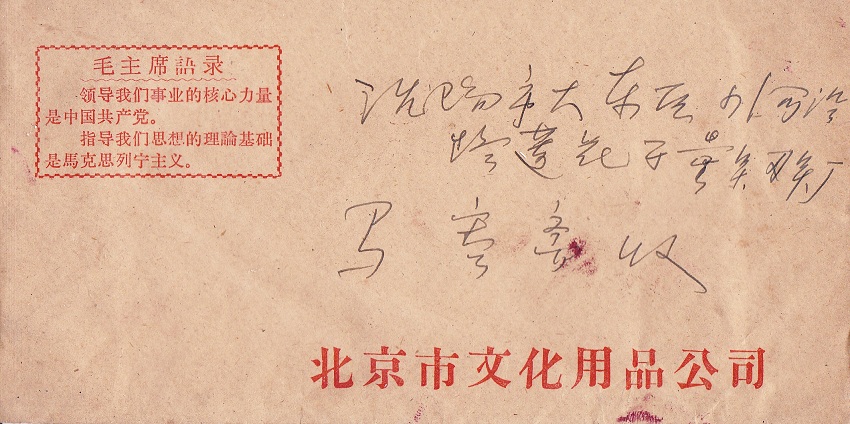 毛主席語录
领导我们事业的核心力量
是中国共产党。
指导我们思想的理論基础
是馬克思列宁主义。
沈阳市大东区
马 收
北京市文化用品公司